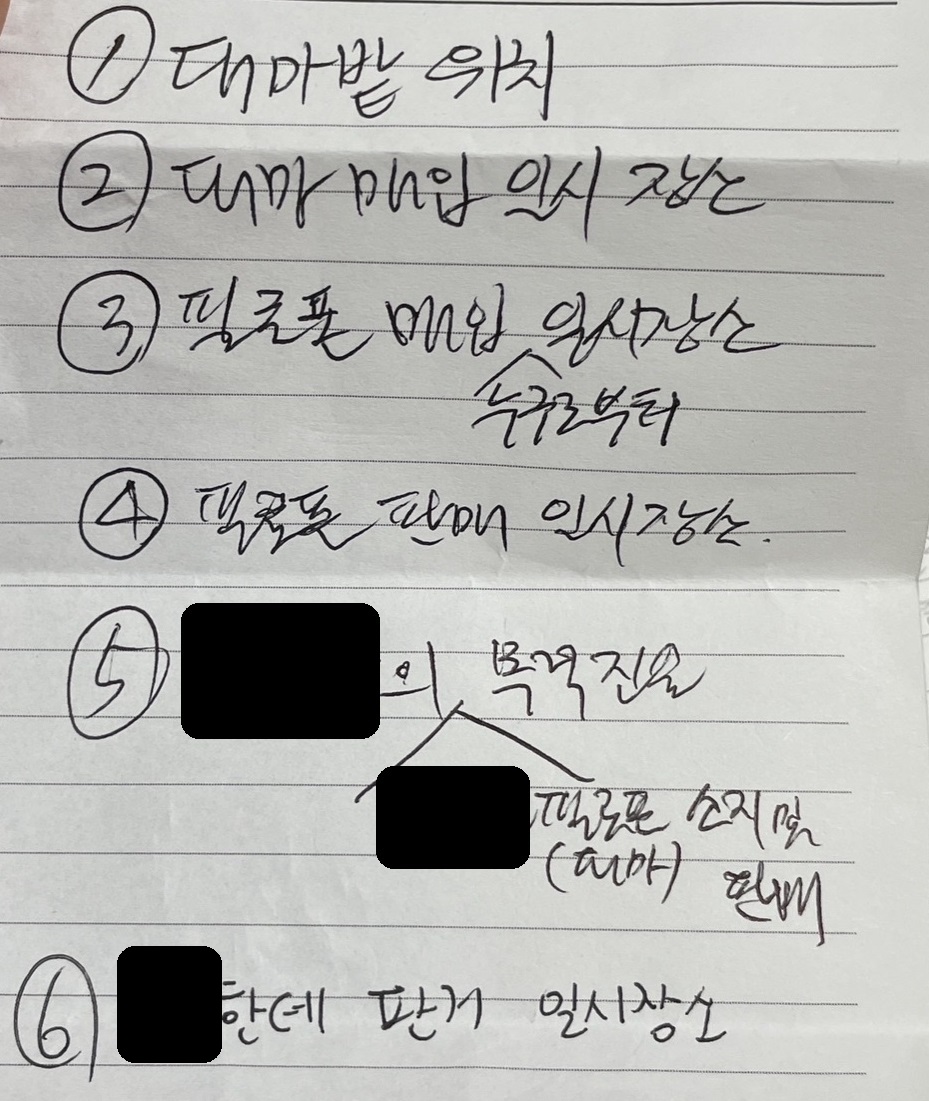 ① 대마밭 위치
② 대마 매입 일시 장소
③ 필로폰 매입 일시장소
누구로부터
④ 필로폰 판매 일시장소.
⑤ 의 목격진술
필로폰 소지 및
(대마) 판매
⑥ 한데 판거 일시장소